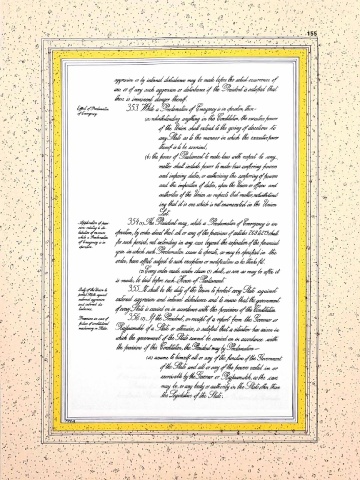 155
aggression or by internal disturbance may be made before the actual occurrence of
war or of any such aggression or disturbance if the President is satisfied that
there is imminent danger thereof.
Effect of Proclamation
of Emergency.
353. While a Proclamation of Emergency is in operation, then—
(a) notwithstanding anything in this Constitution, the executive power
of the Union shall extend to the giving of directions to
any State as to the manner in which the executive power
thereof is to be exercised;
(b) the power of Parliament to make laws with respect to any
matter shall include power to make laws conferring powers
and imposing duties, or authorising the conferring of powers
and the imposition of duties, upon the Union or officers and
authorities of the Union as respects that matter, notwithstand-
ing that it is one which is not enumerated in the Union
List.
354. (1) The President may, while a Proclamation of Emergency is in
operation, by order direct that all or any of the provisions of articles 268 to 279 shall
for such period, not extending in any case beyond the expiration of the financial
year in which such Proclamation ceases to operate, as may be specified in the
order, have effect subject to such exceptions or modifications as he thinks fit.
(2) Every order made under clause (1) shall, as soon as may be after it
is made, be laid before each House of Parliament.
Duty of the Union to
protect States against
external aggression
and internal dis-
turbance.
355. It shall be the duty of the Union to protect every State against
external aggression and internal disturbance and to ensure that the government
of every State is carried on in accordance with the provisions of this Constitution.
Provisions in case of
failure of constitutional
machinery in States.
356. (1) If the President, on receipt of a report from the Governor or
Rajpramukh of a State or otherwise, is satisfied that a situation has arisen in
which the government of the State cannot be carried on in accordance with
the provisions of this Constitution, the President may by Proclamation—
(a) assume to himself all or any of the functions of the Government
of the State and all or any of the powers vested in or
exercisable by the Governor or Rajpramukh, as the case
may be, or any body or authority in the State other than
the Legislature of the State;